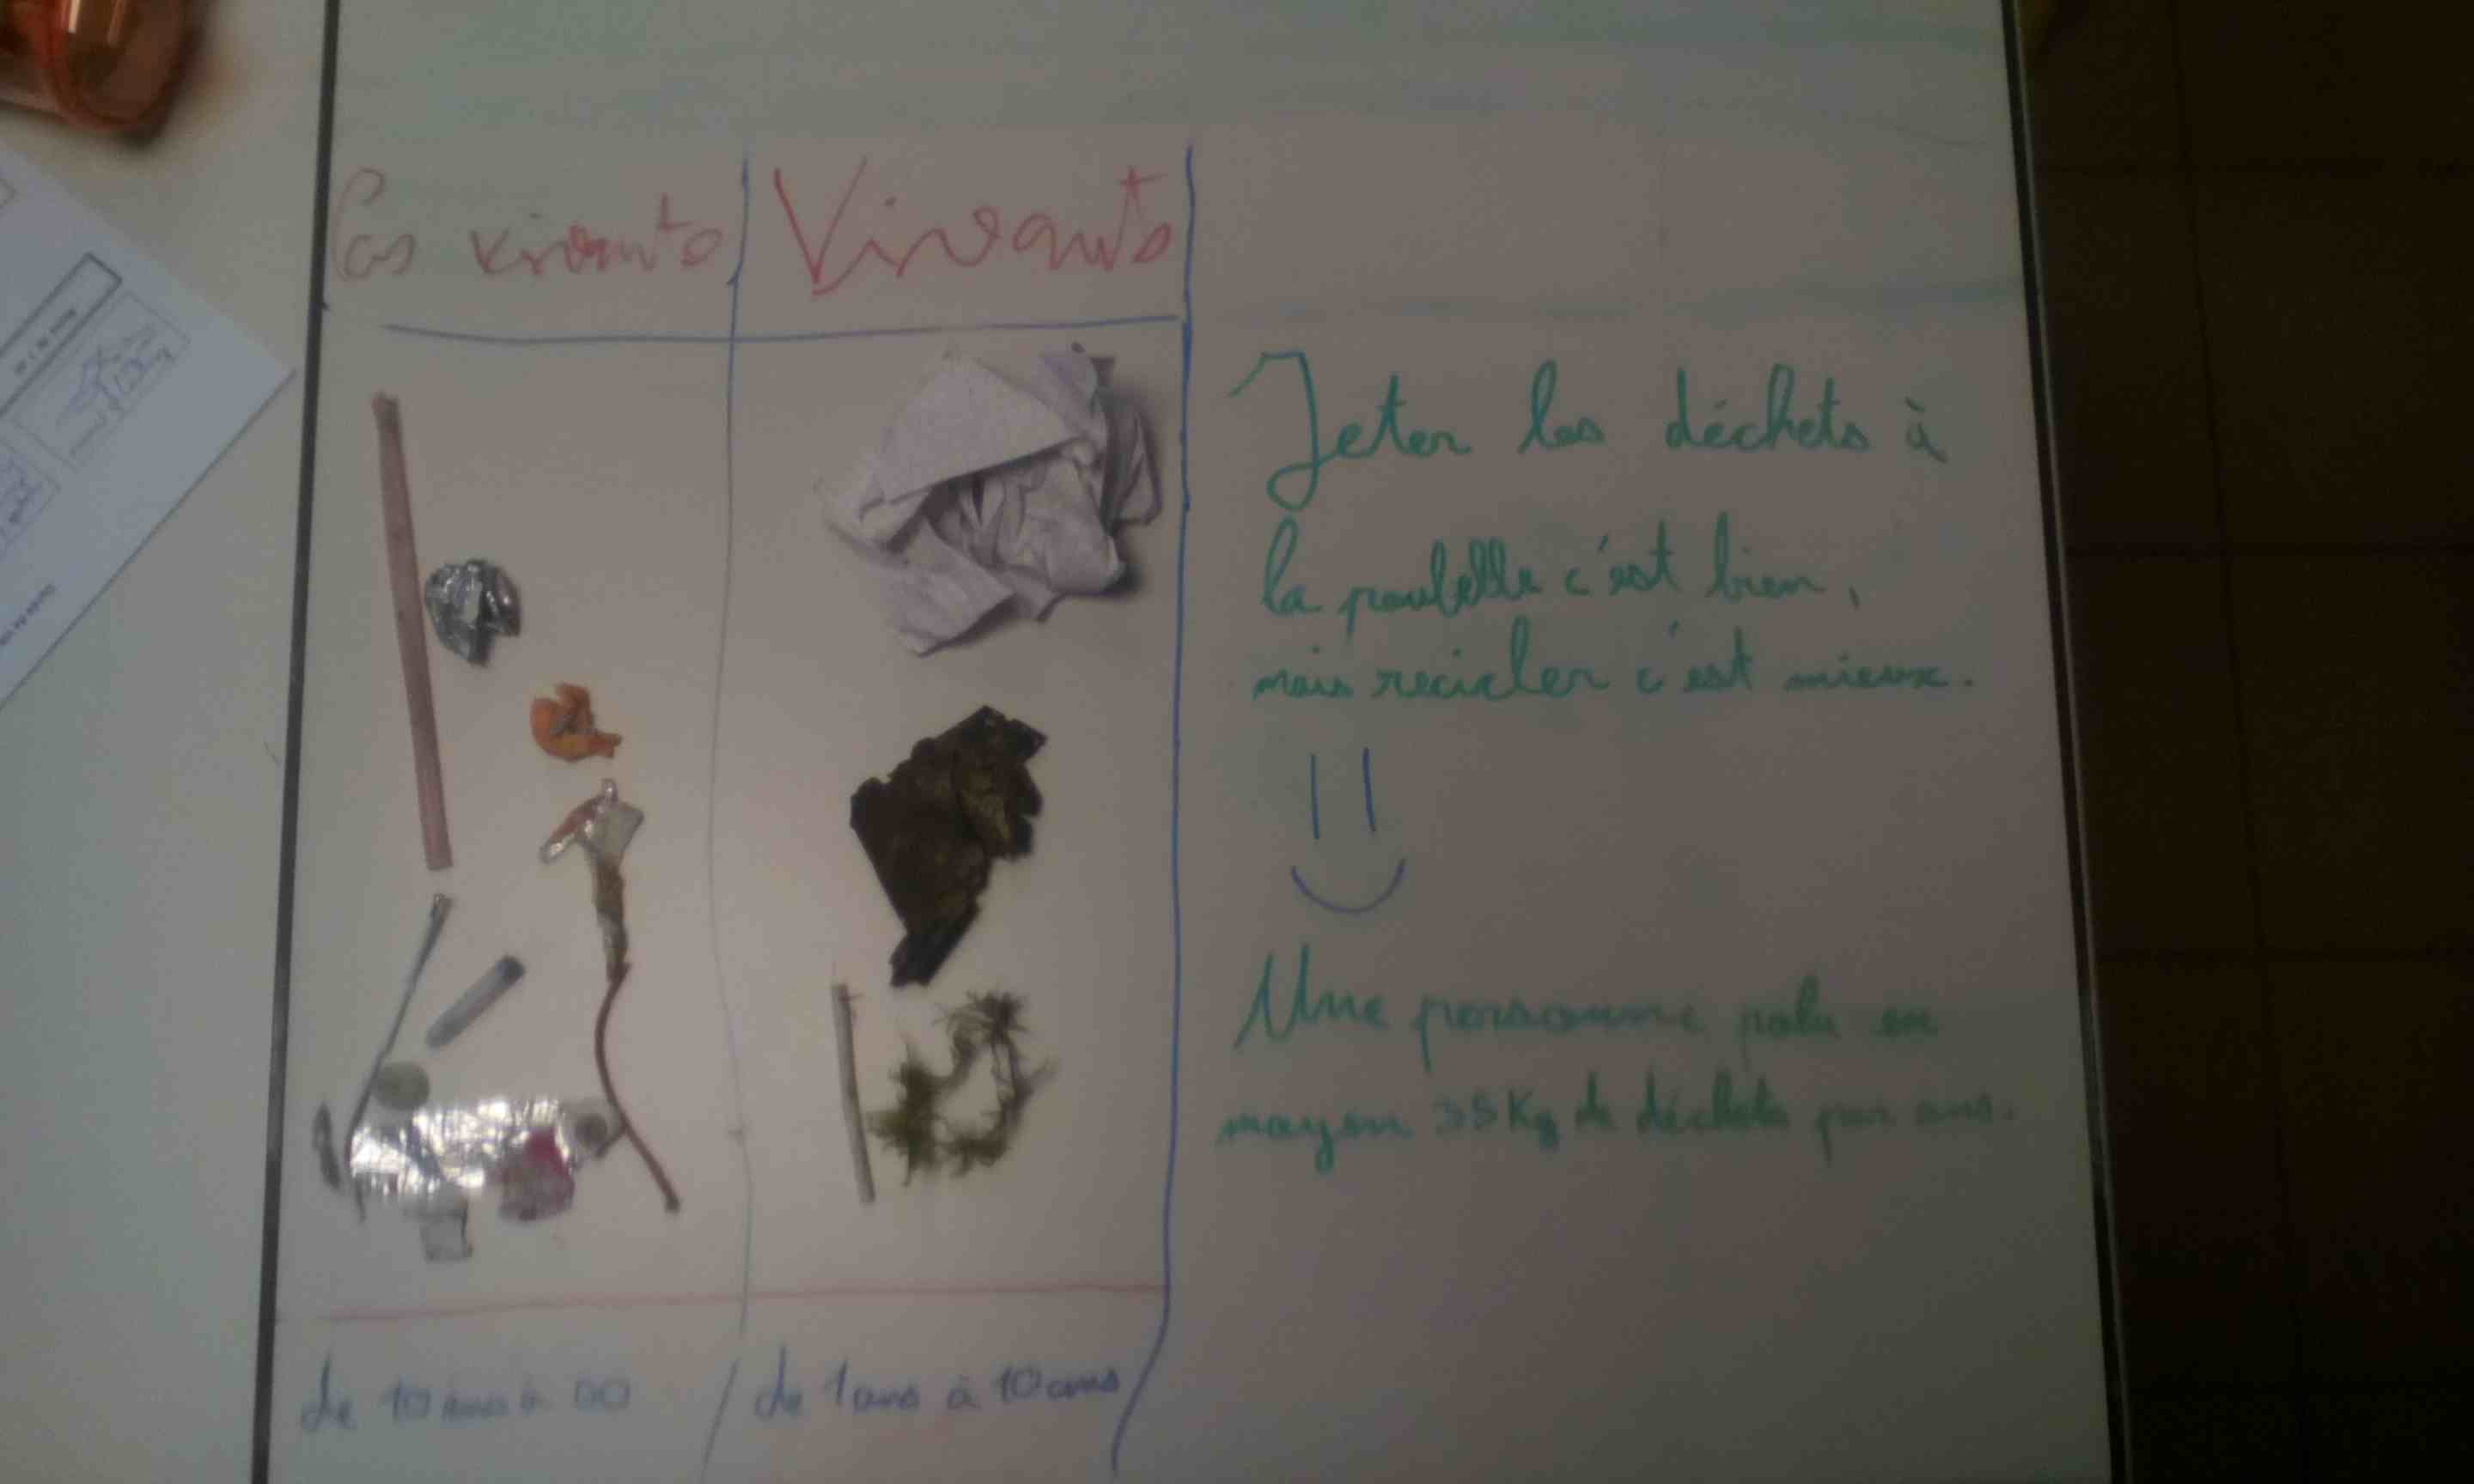 Pas vivants
Vivants
Jeter les déchets à
la poubelle c'est bien,
mais recicler c'est mieux.
Une personne polu en
moyen 35 Kg de déchets par ans.
de 10 ans à ∞
de 1 ans à 10 ans